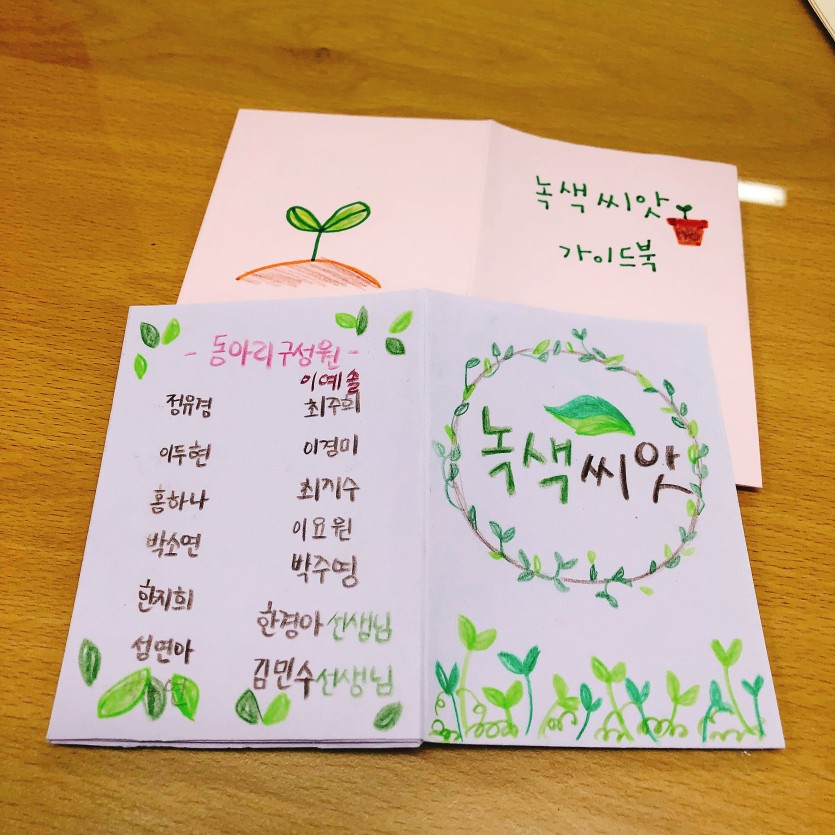 녹색 씨앗
가이드북
- 동아리구성원 -
이예솔
정유경 최주희
이두현 이경미
홍하나 최지수
박소연 이요원
박주영
한지희 한경아 선생님
성연아 김민수선생님
녹색씨앗